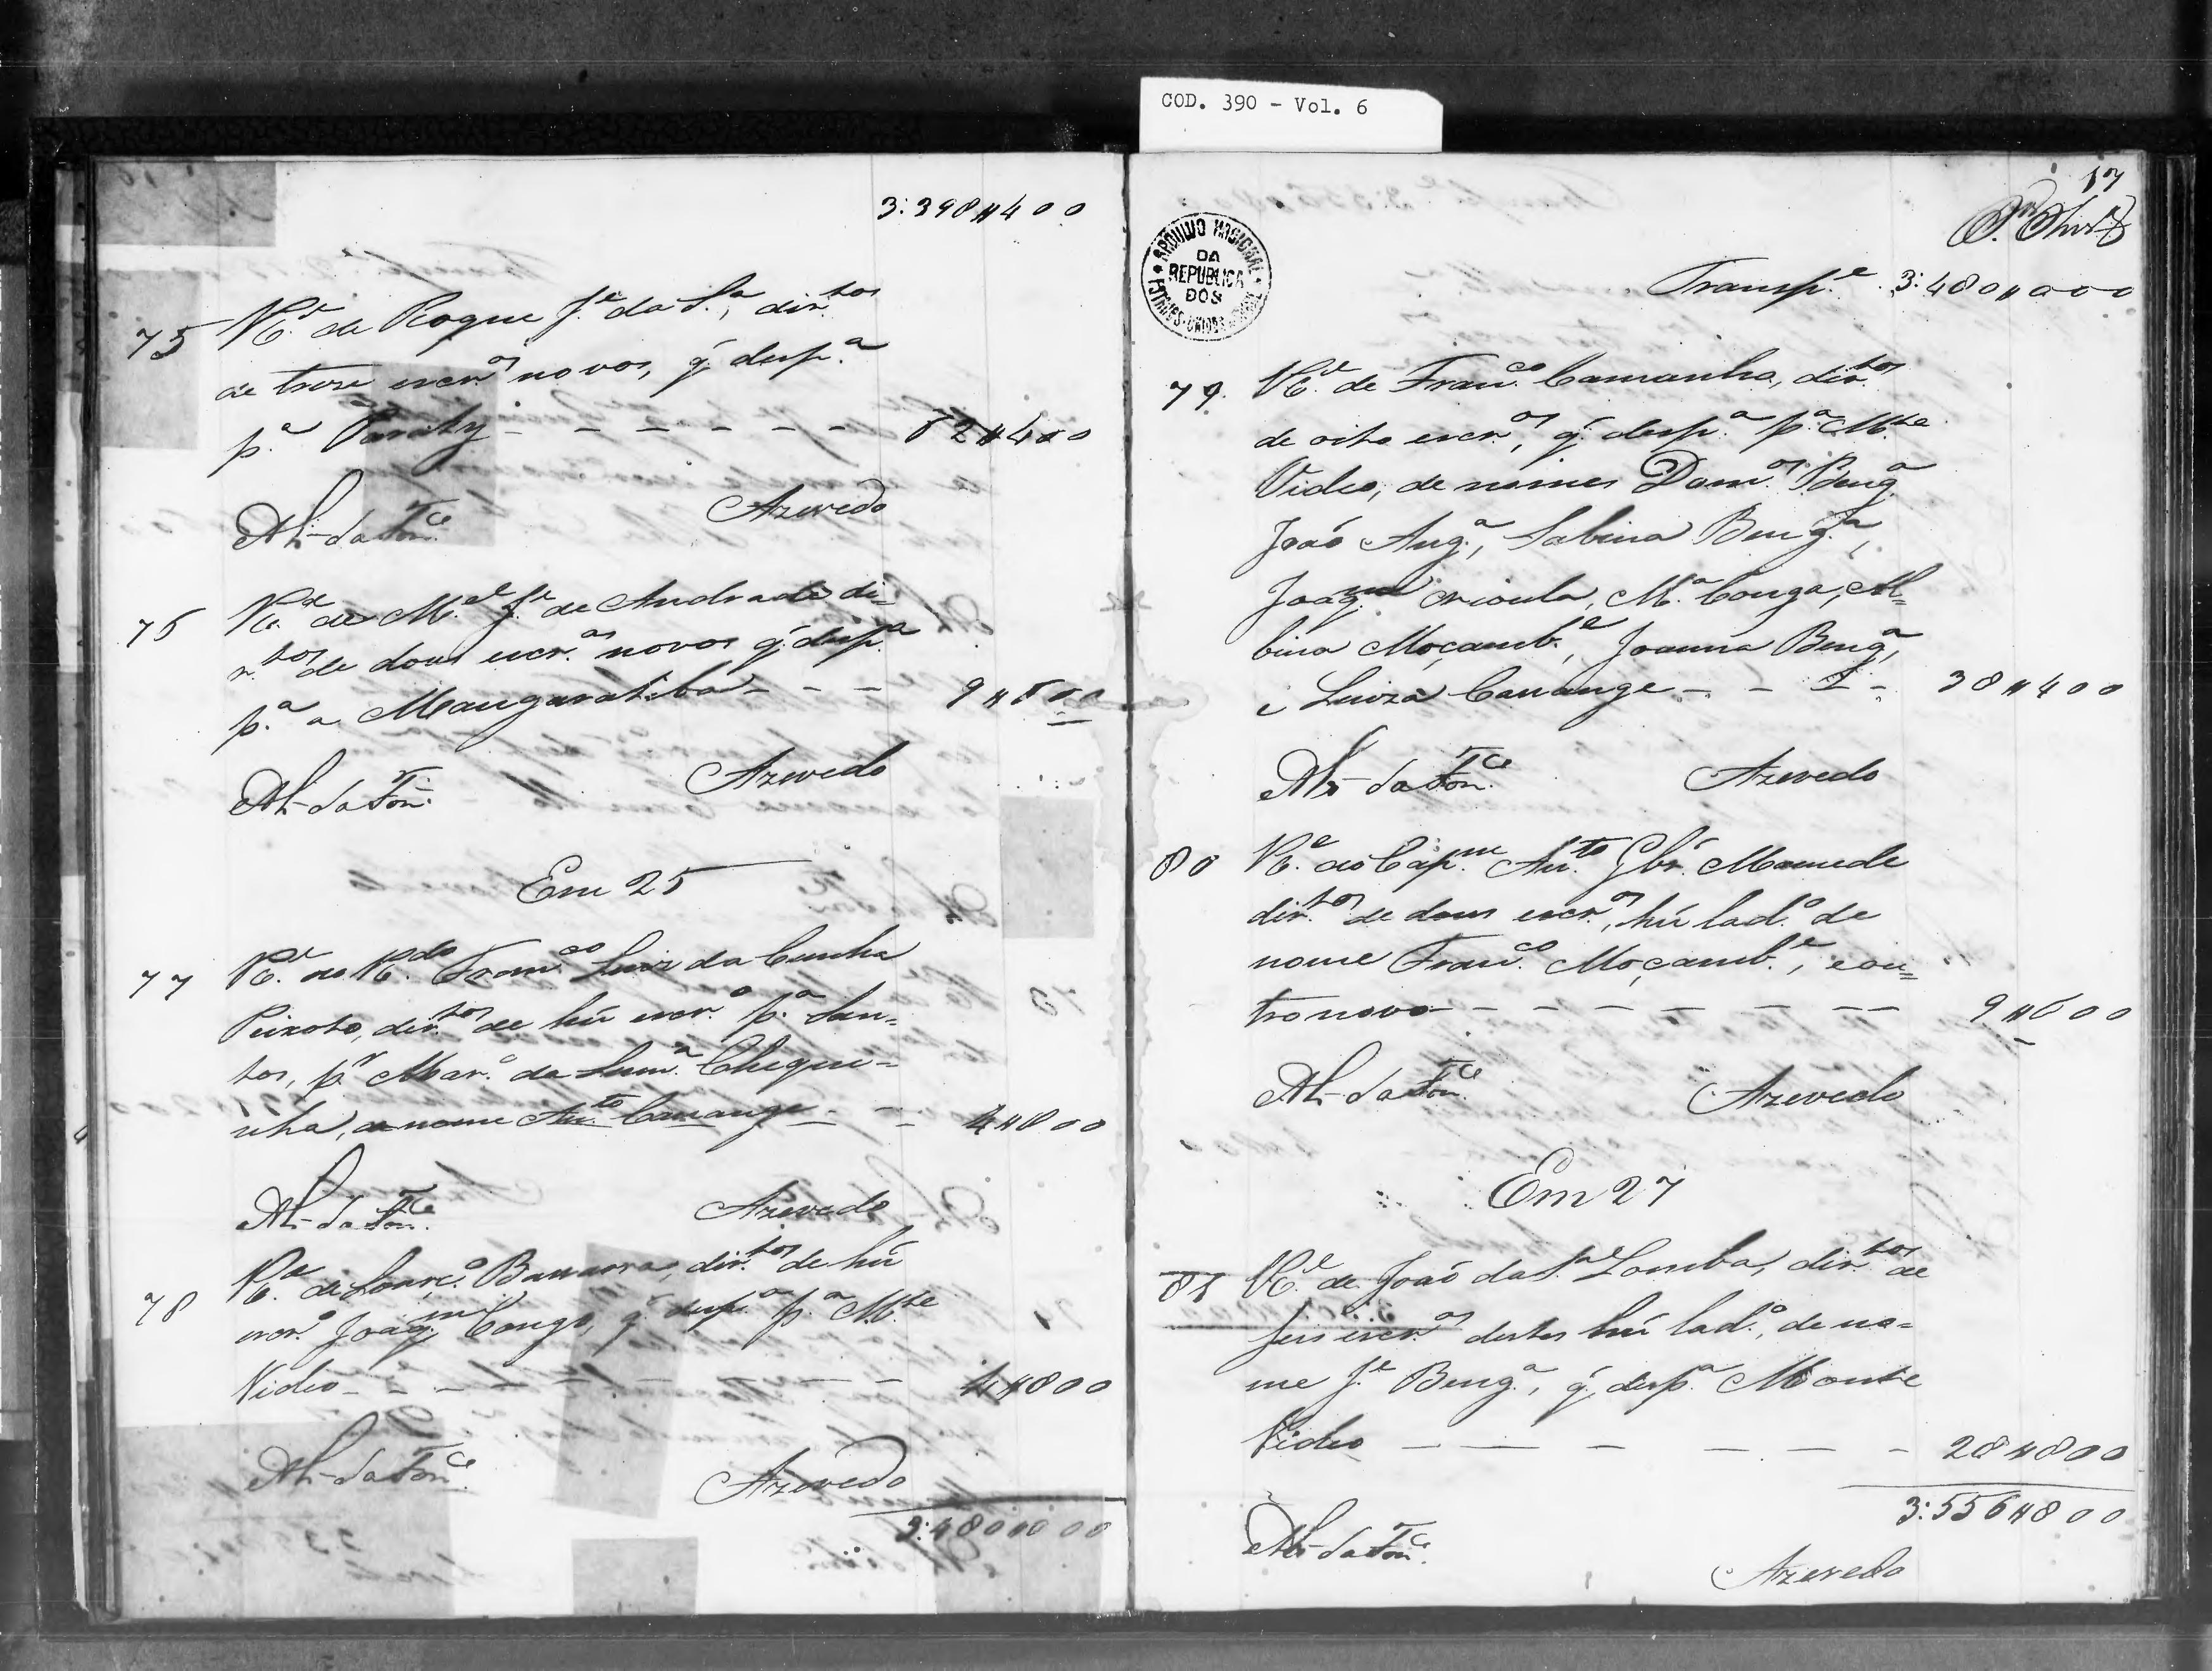 COD. 390 - Vol. 6
3:398#400
75 R.e de Roque J.e da S.a, dir.tos
de treze escr.os novos, q̃ desp.a
p.a Paraty - - - - - - 62#400
Al- da Fon.ca Azevedo
76 R.e de M.el J.e de Andrade di=
r.tos de dous escr.os novos q̃ desp.a
p.a a Mangaratiba - - - 9#600
Al- da Fon.ca Azevedo
Em 25
77 R.e do R.do Fran.co Luiz da Cunha
Peixoto, dir.tos de hũ escr.o p.a San=
tos, p.r Mar.o da Sum.a Chequi=
nha, de nome An.to Cassange - - - 4#800
Al- da Fon.ca Azevedo
78 R.e de Lour.ço Bandarra, dir.tos de hũ
escr.o Joaq.m Congo, q̃ desp.a p.a M.te
Video - - - - - - - - - 4#800
Al- da Fon.ca Azevedo
3:480#000
17
ARQUIVO NACIONAL
DA
REPUBLICA
DOS
ESTADOS-UNIDOS
Transp.e 3:480#000
79. R.e de Fran.co Camanho, dir.tos
de oito escr.os, q̃ desp.a p.a M.te
Video, de nomes Dom.os Beng.a
João Ang.a, Sabina Beng.a,
Joaq.na crioula, M.a Conga, Al=
bina Moçamb.e, Joanna Beng.a,
e Luiza Cassange - - - - 38#400
Al- da Fon.ca Azevedo
80 R.e do Cap.m An.to Glz. Mamede
dir.tos de dous escr.os, hũ lad.o de
nome Fran.co Moçamb.e, e ou=
tro novo - - - - - - - - 9#600
Al- da Fon.ca Azevedo
Em 27
81 R.e de João da S.a Lomba, dir.tos de
seis escr.os destes hũ lad.o, de no=
me J.e Beng.a, q̃ desp.a Monte
Video - - - - - - 28#800
3:556#800
Al- da Fon.ca
Azevedo